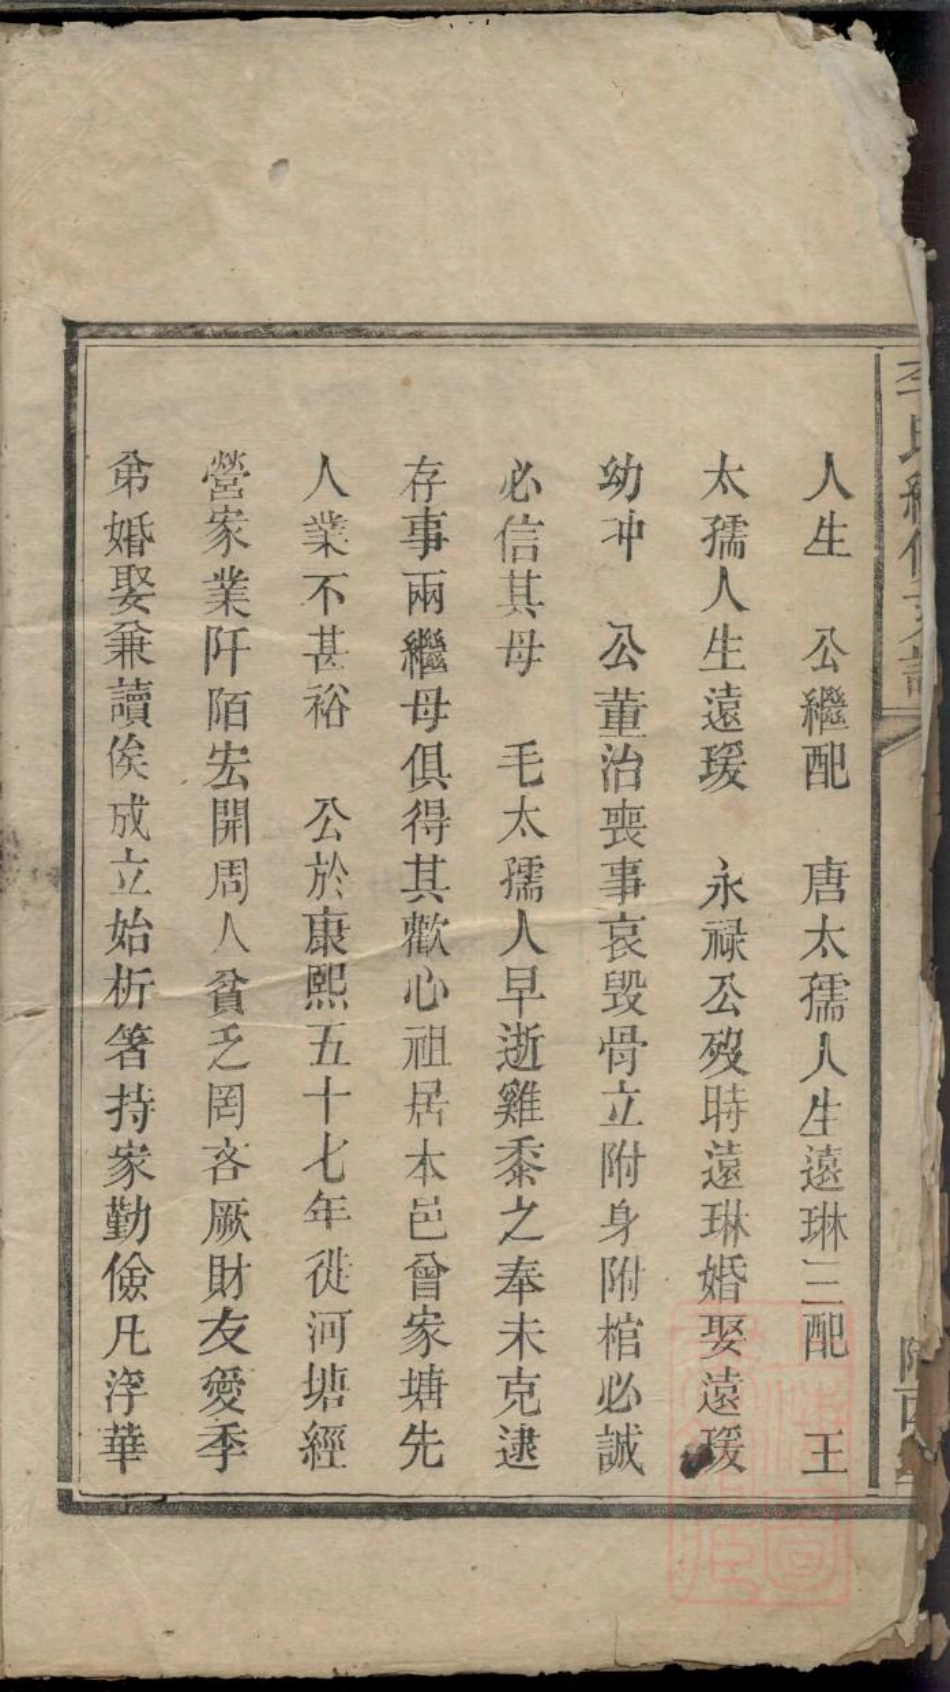 李氏續修支譜
人生　公繼配　唐太孺人生遠琳三配　王
太孺人生遠瑗　永祿公歿時遠琳婚娶遠瑗
幼冲　公董治喪事哀毀骨立附身附棺必誠
必信其母　毛太孺人早逝雞黍之奉未克逮
存事兩繼母俱得其歡心祖居本邑曾家塘先
人業不甚裕　公於康熙五十七年徙河塘經
營家業阡陌宏開周人貧乏罔吝厥財友愛季
弟婚娶兼讀俟成立始析箸持家勤儉凡浮華